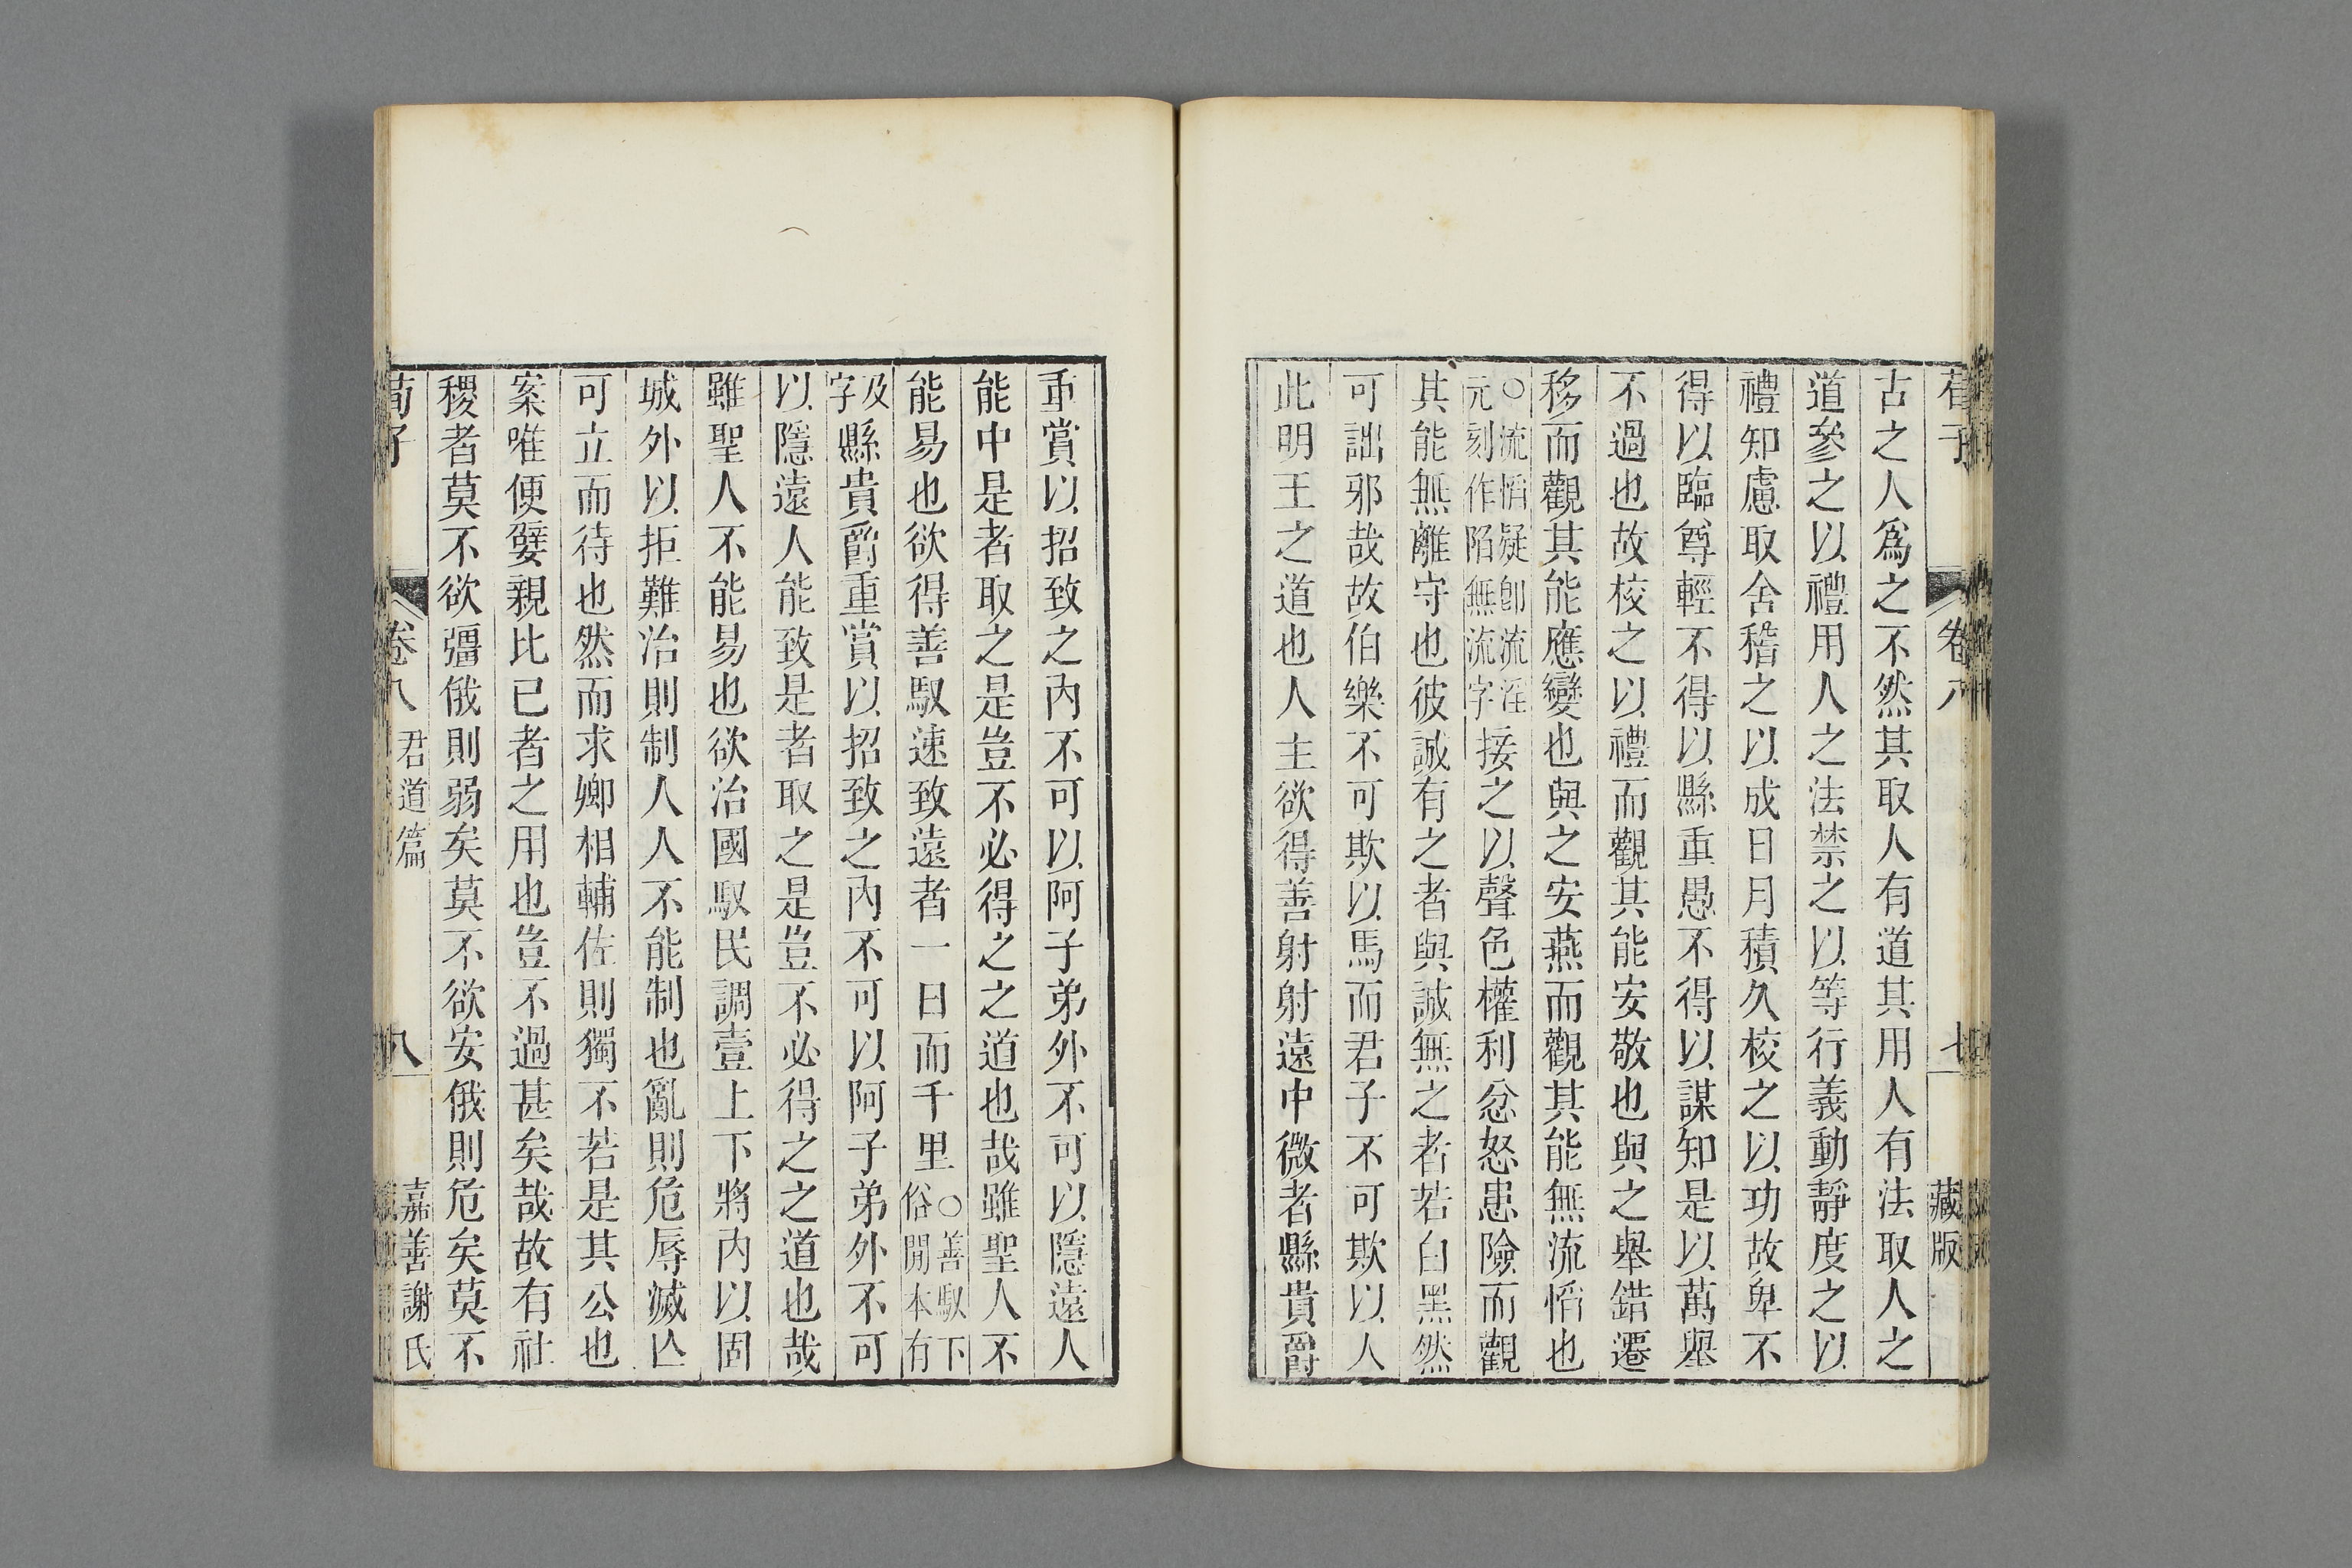 荀子 卷八 七 藏版
古之人爲之不然其取人有道其用人有法取人之
道參之以禮用人之法禁之以等行義動靜度之以
禮知慮取舍稽之以成日月積久校之以功故卑不
得以臨尊輕不得以縣重愚不得以謀知是以萬舉
不過也故校之以禮而觀其能安敬也與之舉錯遷
移而觀其能應變也與之安燕而觀其能無流慆也
○流慆疑卽流淫
元刻作陷無流字
接之以聲色權利忿怒患險而觀
其能無離守也彼誠有之者與誠無之者若白黑然
可詘邪哉故伯樂不可欺以馬而君子不可欺以人
此明王之道也人主欲得善射射遠中微者縣貴爵
重賞以招致之內不可以阿子弟外不可以隱遠人
能中是者取之是豈不必得之之道也哉雖聖人不
能易也欲得善馭速致遠者一日而千里
○善馭下
俗閒本有
及
字
縣貴爵重賞以招致之內不可以阿子弟外不可
以隱遠人能致是者取之是豈不必得之之道也哉
雖聖人不能易也欲治國馭民調壹上下將內以固
城外以拒難治則制人人不能制也亂則危辱滅亾
可立而待也然而求卿相輔佐則獨不若是其公也
案唯便嬖親比己者之用也豈不過甚矣哉故有社
稷者莫不欲彊俄則弱矣莫不欲安俄則危矣莫不
荀子 卷八 君道篇 八 嘉善謝氏